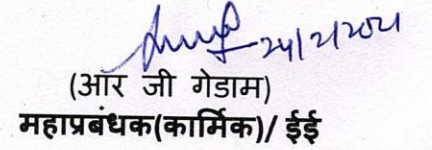 24/2/2021
(आर जी गेडाम)
महाप्रबंधक(कार्मिक)/ ईई